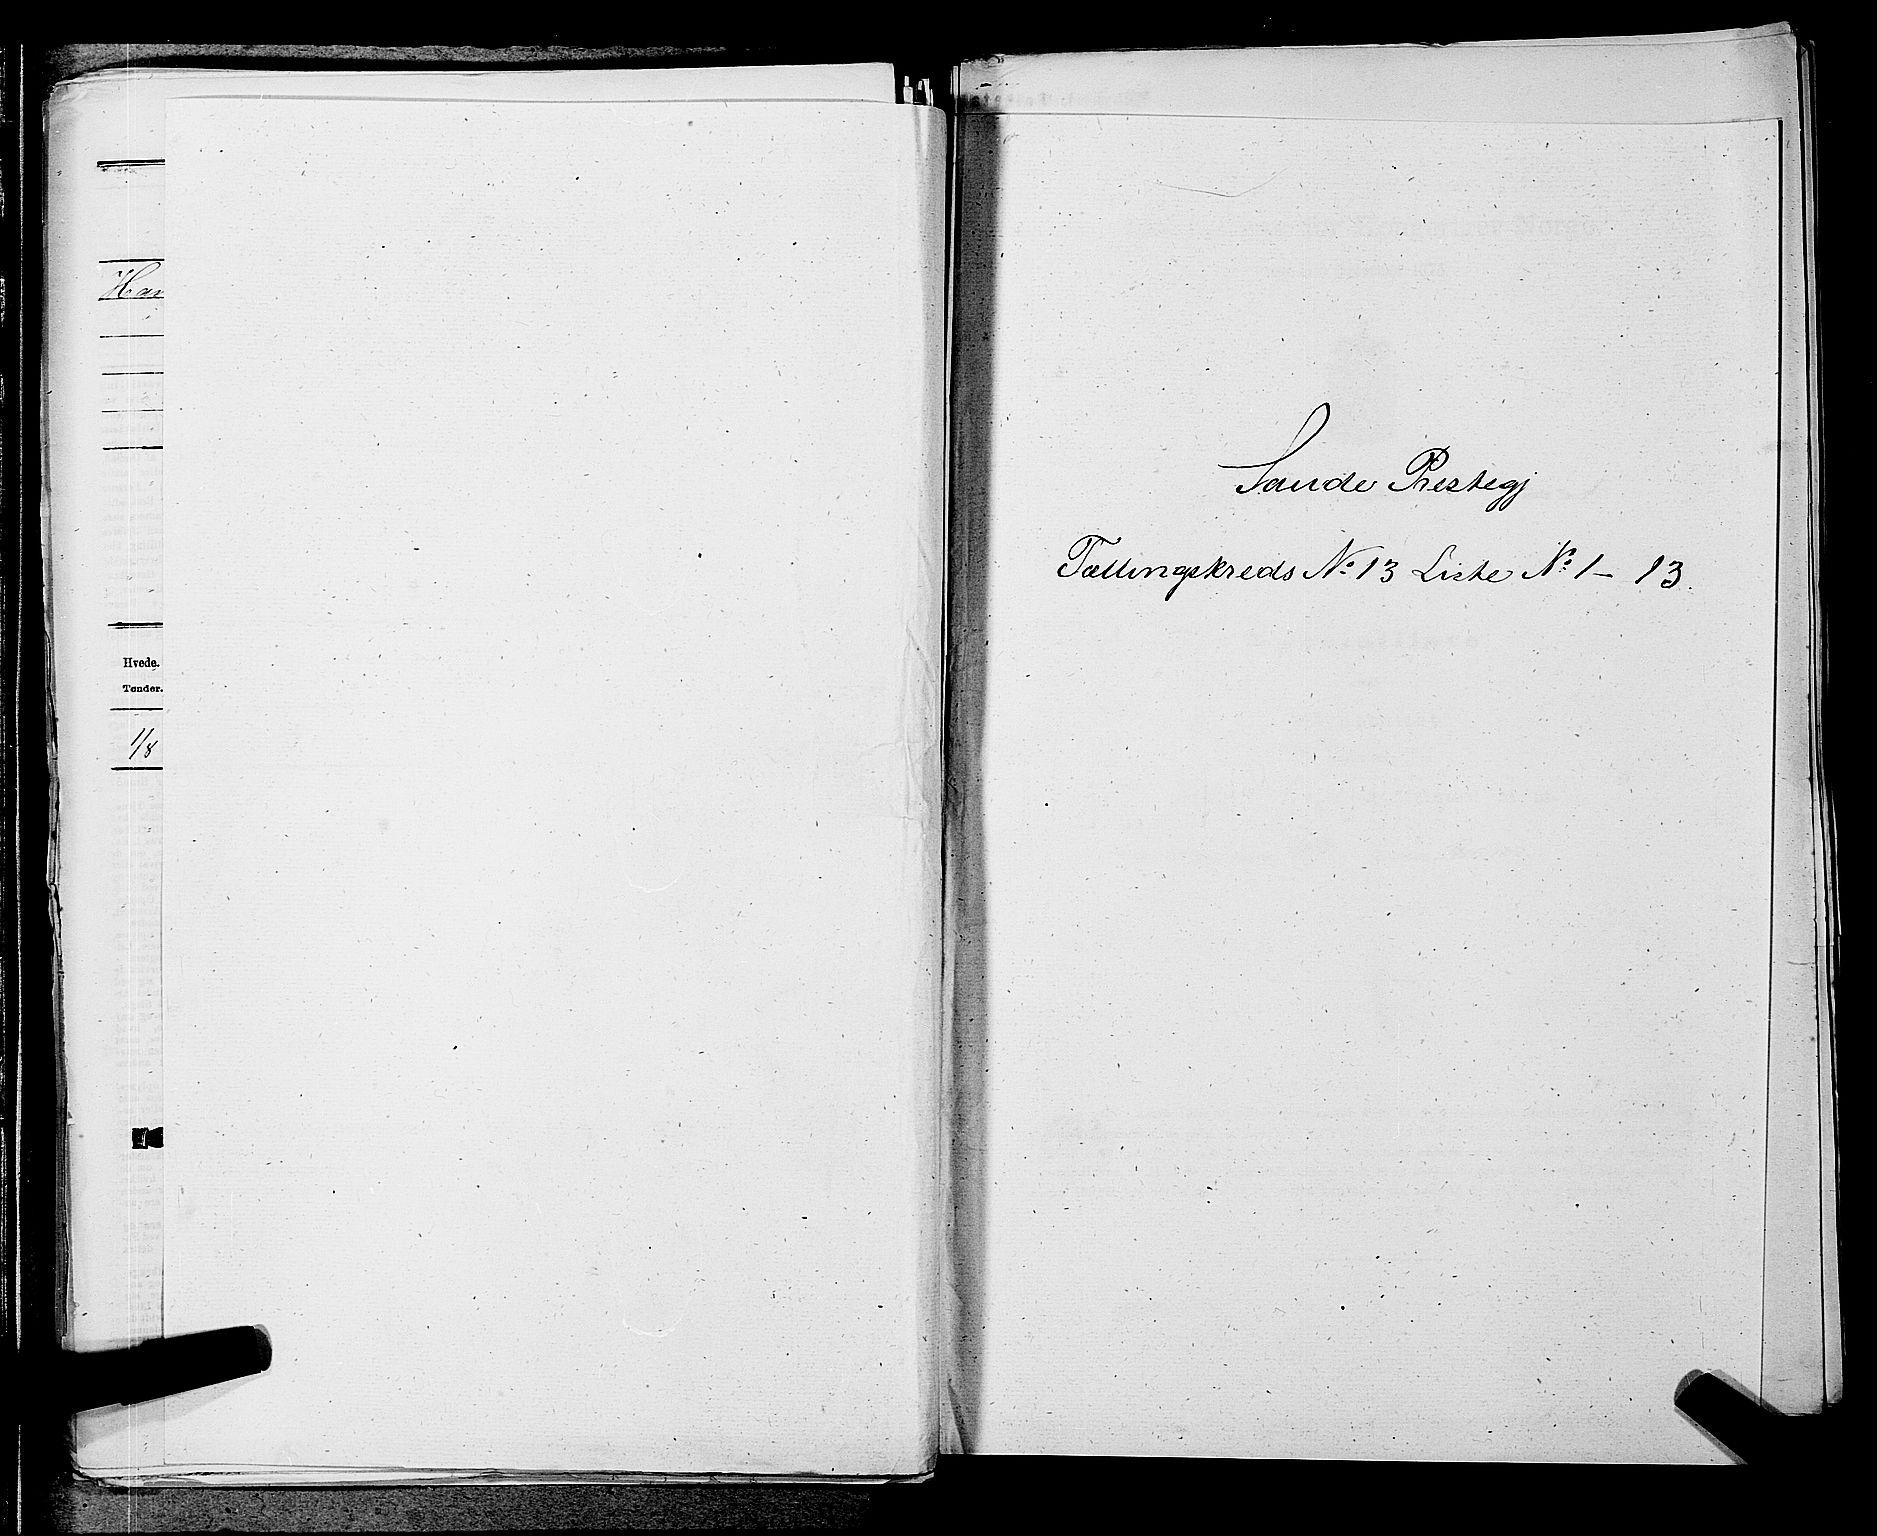 Han
Hvede.
Tønder.
1/8
Sande Prestegj
Tællingskreds No 13 Liste No 1 – 13.